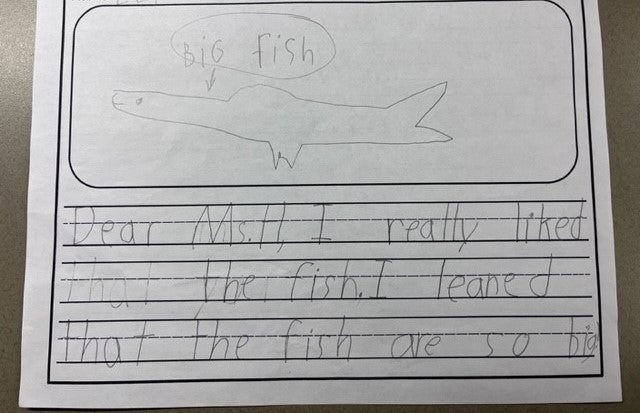 BiG fish
Dear Ms.H, I really liked
that the fish. I leaned
that the fish are so big